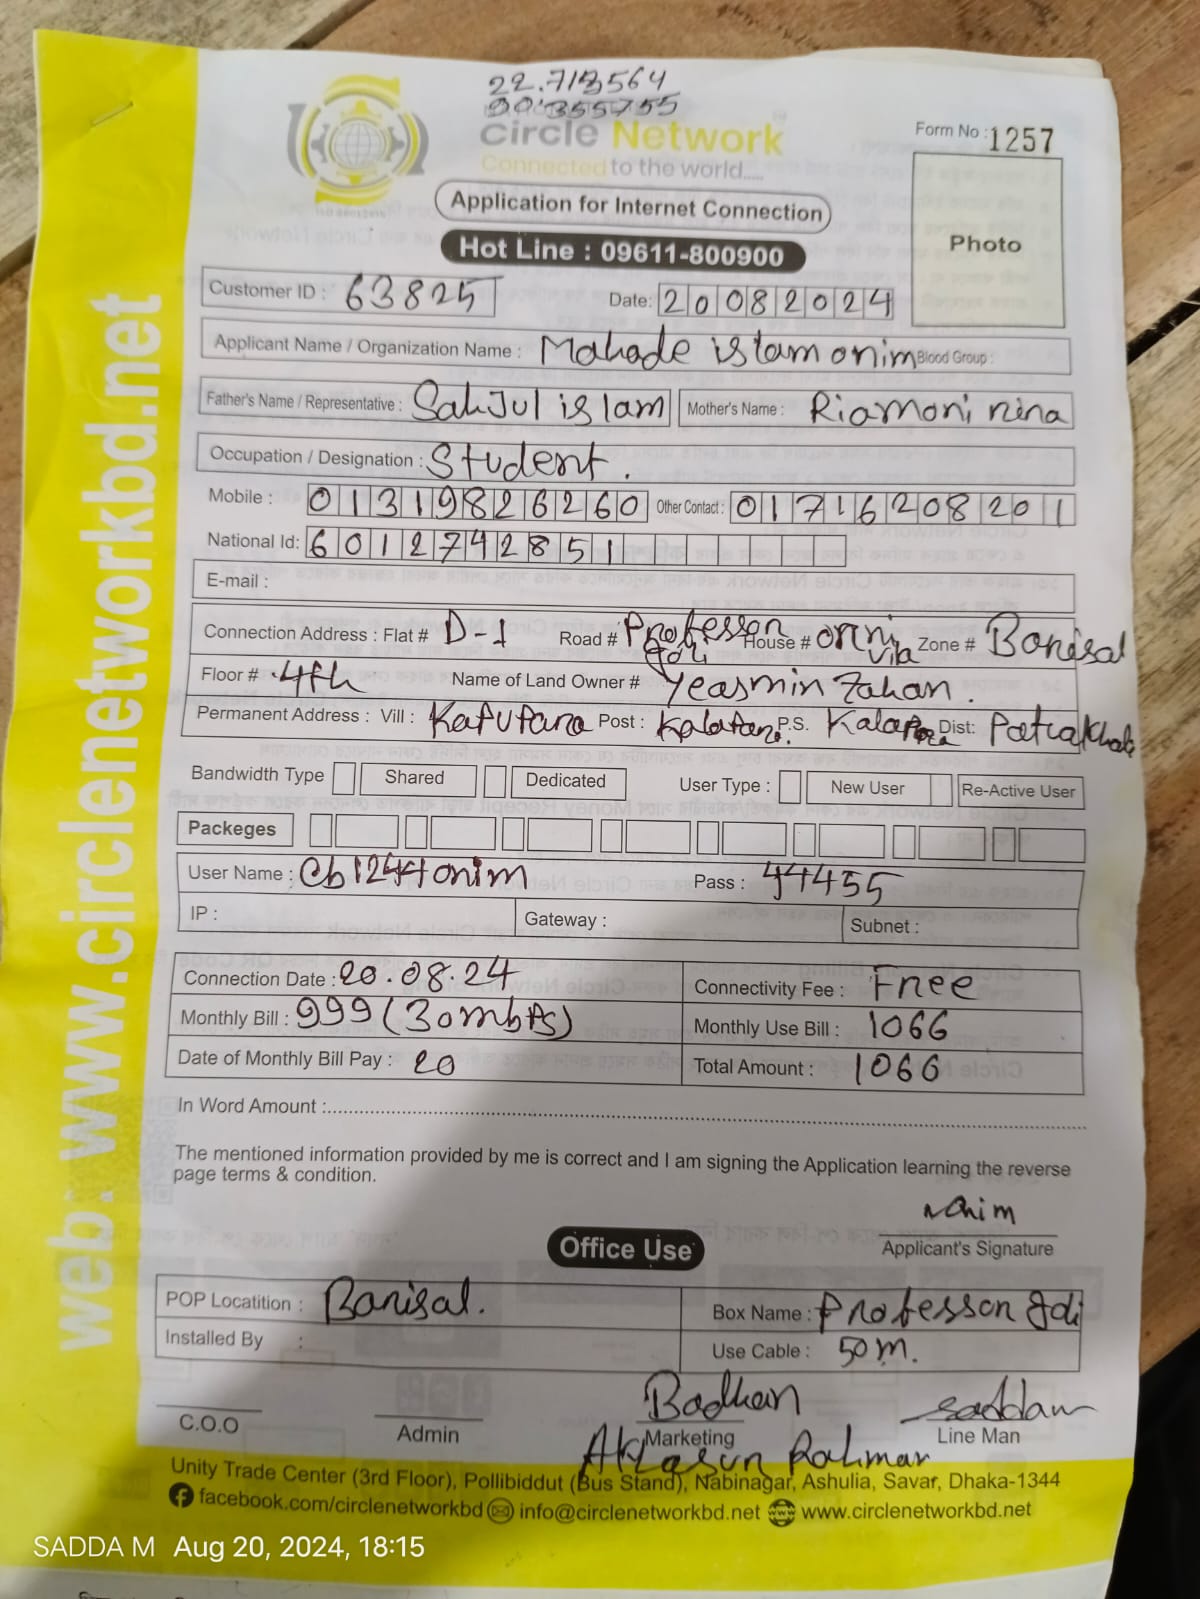 22.713564
90.355755
Circle Network
Connected to the world.....
Form No : 1257
Photo
Application for Internet Connection
Hot Line : 09611-800900
Customer ID : 63825
Date: 20082024
Applicant Name / Organization Name : Mahade islam onim Blood Group :
Father's Name / Representative : SahJul islam Mother's Name : Riamoni nina
Occupation / Designation : Student.
Mobile : 01319826260 Other Contact : 01716208201
National Id: 6012742851
E-mail :
Connection Address : Flat # D-1 Road # Professor goli House # onni vila Zone # Barisal
Floor # 4th Name of Land Owner # Yeasmin Zahan.
Permanent Address : Vill : Post : P.S. Kalapara Dist: Patuakhali
Bandwidth Type Shared Dedicated User Type : New User Re-Active User
Packeges
User Name : Cb1244onim Pass : 44455
IP : Gateway : Subnet :
Connection Date : 20.08.24 Connectivity Fee : Free
Monthly Bill : 999 (30mbps) Monthly Use Bill : 1066
Date of Monthly Bill Pay : 20 Total Amount : 1066
In Word Amount :
The mentioned information provided by me is correct and I am signing the Application learning the reverse
page terms & condition.
Applicant's Signature
Office Use
POP Locatition : Barisal. Box Name : Professor goli
Installed By : Use Cable : 50m.
Badhan saddam
C.O.O Admin Marketing Line Man
Rahman
Unity Trade Center (3rd Floor), Pollibiddut (Bus Stand), Nabinagar, Ashulia, Savar, Dhaka-1344
facebook.com/circlenetworkbd info@circlenetworkbd.net www.circlenetworkbd.net
web: www.circlenetworkbd.net
SADDA M Aug 20, 2024, 18:15